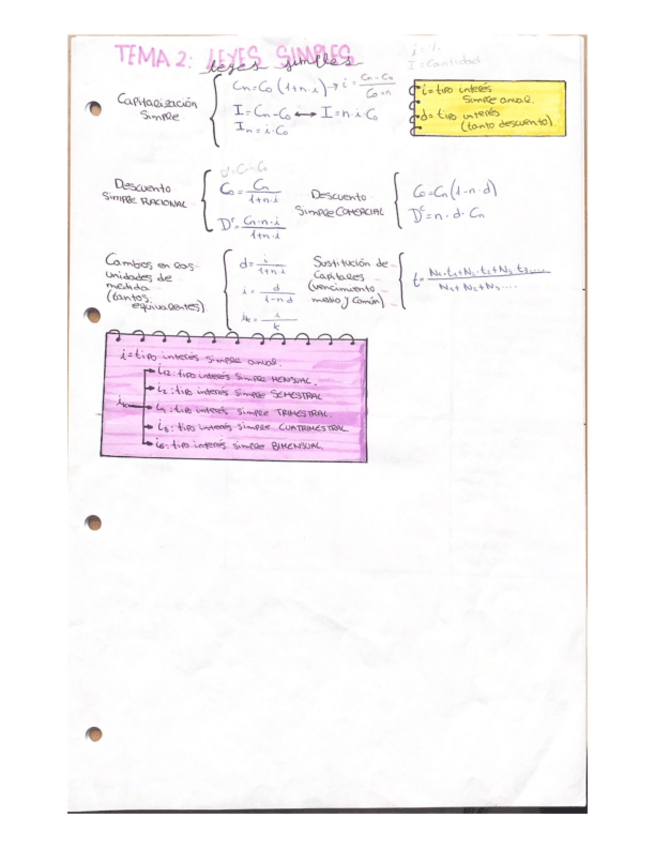 TEMA 2: LEYES SIMPLES
leyes simples
i = %
I = Cantidad
Capitalización Simple
Cn = C0 (1+n·i) → i = Cn - C0 / C0·n
I = Cn - C0 ↔ I = n·i·C0
In = i·C0
i = tipo interés
Simple anual.
d = tipo interés
(tanto descuento)
Descuento
Simple RACIONAL
C0 = Cn / 1+n·i
Dr = Cn·n·i / 1+n·i
Descuento
Simple COMERCIAL
C0 = Cn (1-n·d)
Dc = n·d·Cn
Cambios en las
unidades de
medida
(tantos
equivalentes)
d = i / 1+n·i
i = d / 1-n·d
ik = i / k
Sustitución de
Capitales
(vencimiento
medio y común)
t = N1·t1+N2·t2+N3·t3.... / N1+N2+N3....
i = tipo interés simple anual.
i12: tipo interés simple MENSUAL.
i2: tipo interés simple SEMESTRAL
ik
i4: tipo interés simple TRIMESTRAL.
i3: tipo interés simple CUATRIMESTRAL.
i6: tipo interés simple BIMENSUAL.